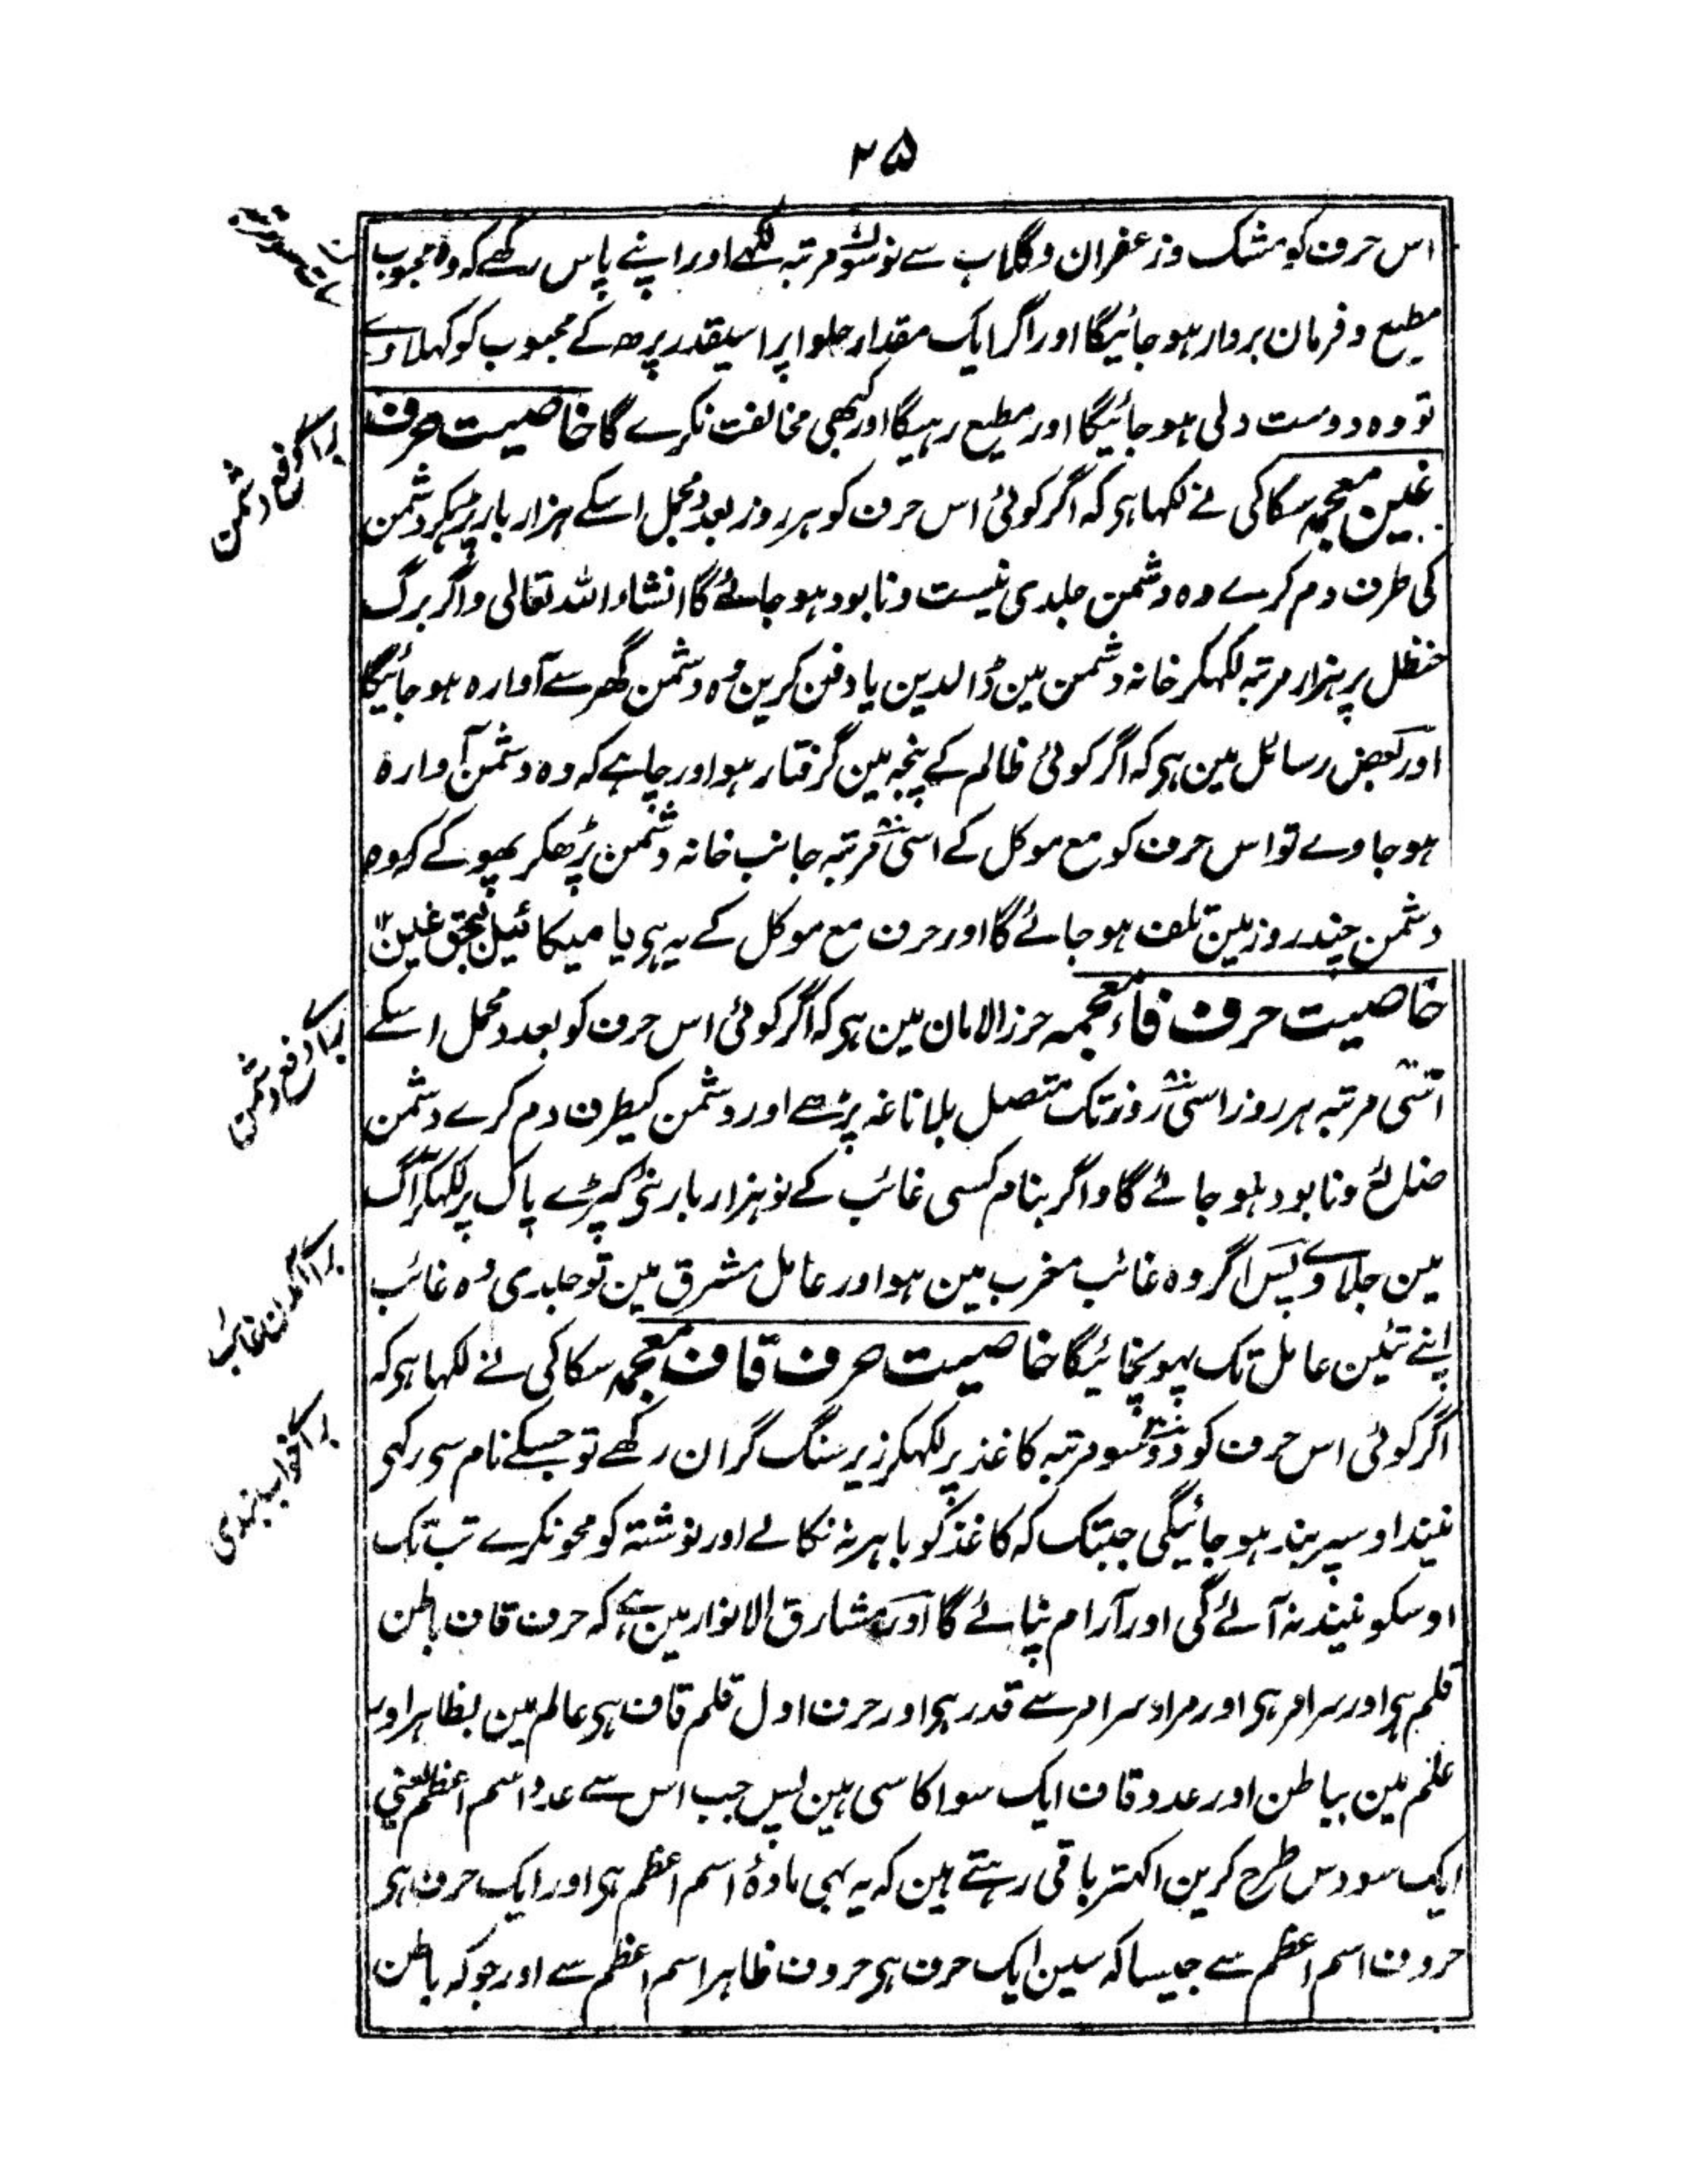 ۲۵
اس حرف کو مشک وزعفران وگلاب سے نوسو مرتبہ لکھے اور اپنے پاس رکھے کہ وہ محبوب
مطیع و فرمان بردار ہو جائیگا اور اگر ایک مقدار حلوا پر اسیقدر پڑھ کے محبوب کو کہلاوے
تو وہ دوست دلی ہو جائیگا اور مطیع رہیگا اور کبھی مخالفت نکرے گا خاصیت حرف
غین معجمہ سکاکی نے لکھا ہی کہ اگر کوئی اس حرف کو ہر روز بعدد مجمل اسکے ہزار بار پڑہکر دشمن
کی طرف دم کرے وہ دشمن جلدی نیست ونابود ہو جائے گا انشاء اللہ تعالی واگر برگ
حنظل پر ہزار مرتبہ لکہکر خانہ دشمن مین ڈالدین یا دفن کرین وہ دشمن گھر سے آوارہ ہو جائیگا
اور بعض رسائل مین ہی کہ اگر کوئی ظالم کے پنجہ مین گرفتار ہو اور چاہے کہ وہ دشمن آوارہ
ہو جاوے تو اس حرف کو مع موکل کے اسی مرتبہ جانب خانہ دشمن پڑھکر پھونکے کہ وہ
دشمن چند روز مین تلف ہو جائے گا اور حرف مع موکل کے یہ ہی یا میکائیل بحق غین
خاصیت حرف فاء معجمہ حرز الامان مین ہی کہ اگر کوئی اس حرف کو بعدد مجمل اسکے
اسی مرتبہ ہر روز اسی روز تک متصل بلا ناغہ پڑھے اور دشمن کیطرف دم کرے دشمن
ضائع ونابود ہو جائے گا واگر بنام کسی غائب کے نو ہزار بار نئے کپڑے پاک پر لکہکر آگ
مین جلاوے پس اگر وہ غائب مغرب مین ہو اور عامل مشرق مین تو جلدی وہ غائب
اپنے تئین عامل تک پہونچائیگا خاصیت حرف قاف معجمہ سکاکی نے لکہا ہی کہ
اگر کوئی اس حرف کو دوسو مرتبہ کاغذ پر لکہکر زیر سنگ گران رکھے تو جسکے نام سی رکہی
نیند اوسپر بند ہو جائیگی جبتک کہ کاغذ کو باہر نہ نکالے اور نوشتہ کو محو نکرے تب تک
اوسکو نیند نہ آئے گی اور آرام نپائے گا اور مشارق الانوار مین ہے کہ حرف قاف باطن
قلم ہی اور سرامر ہی اور مراد سرامر سے قدر ہی اور حرف اول قلم قاف ہی عالم مین بظاہر اور
علم مین بباطن اور عدد قاف ایک سو اکاسی ہین پس جب اس سے عدد اسم اعظم یعنی
ایک سو دس طرح کرین اکہتر باقی رہتے ہین کہ یہ بہی مادۂ اسم اعظم ہی اور ایک حرف ہی
حروف اسم اعظم سے جیسا کہ سین ایک حرف ہی حروف ظاہر اسم اعظم سے اور جو کہ باطن
برائ دفع دشمن
برائ دفع دشمن
برائ آمدن غائب
برائ خواب بندی